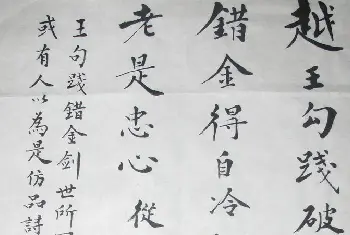 越王勾践破
錯金得自冷
老是忠心從
王句踐錯金劍世所
或有人以為是仿品詩